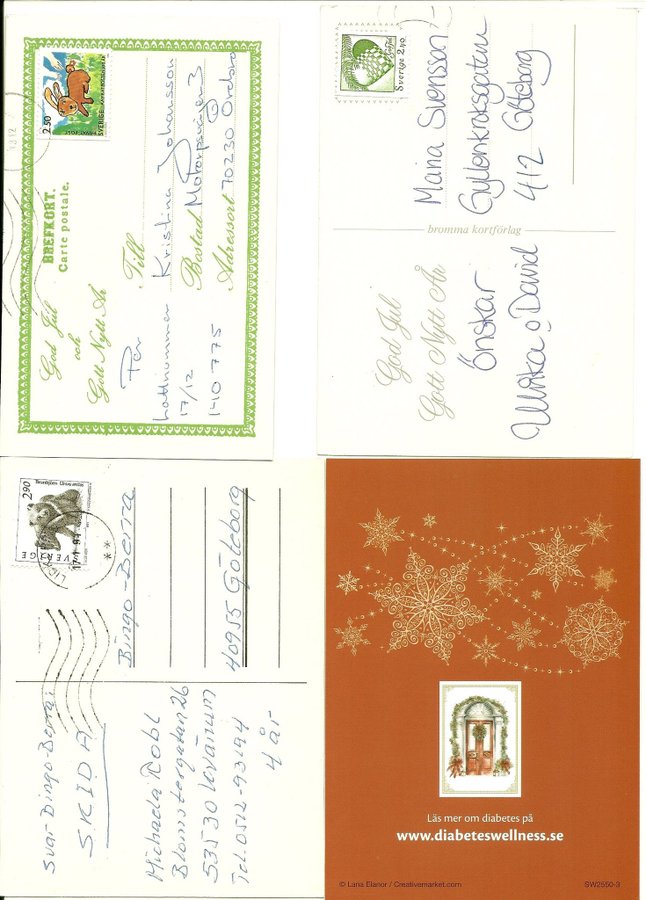 2.50
SVERIGE
BREFKORT.
Carte postale.
God Jul
och
Gott Nytt År
Till
Kristina Johansson
Bostad Motorpsvägen 3
Adressort 70230 Örebro
Per
Lottnummer
17/12
1-10 775
Sverige 2,40
Maria Svensson
Gyllenkrooksgatan
412 Göteborg
bromma kortförlag
God Jul
Gott Nytt År
Önskar
Ulrika o David
2.90
SVERIGE
17-1 94
Bingo-Berra
40955 Göteborg
Svar Bingo-Berra:
SKIDA
Michaela Robl
Blomstergatan 26
53530 Kvänum
Tel. 0512-93194
4 år
Läs mer om diabetes på
www.diabeteswellness.se
© Lana Elanor / Creativemarket.com
SW2550-3